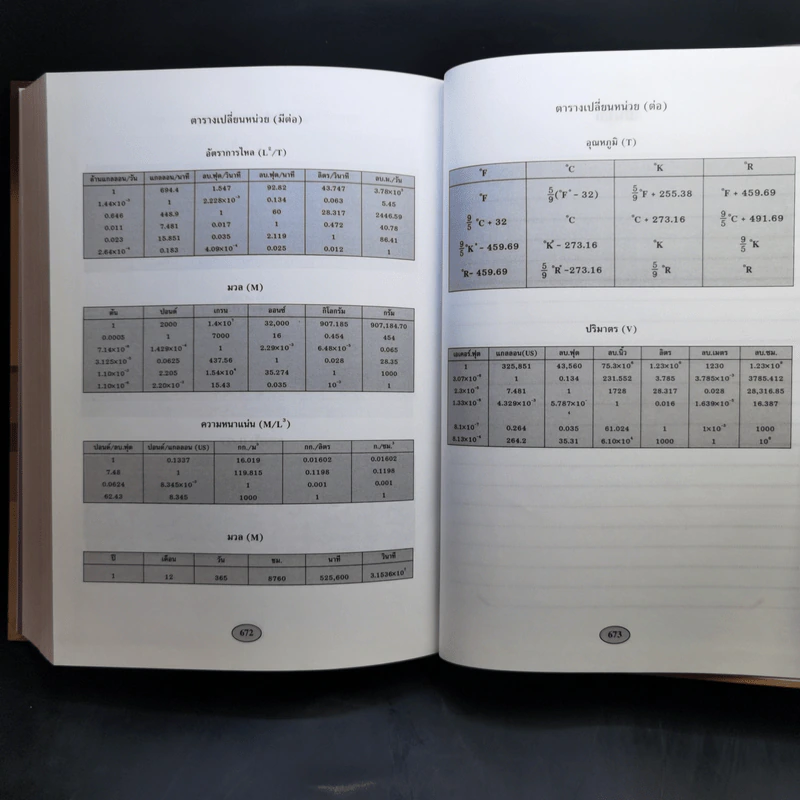 ตารางเปลี่ยนหน่วย (มีต่อ)
อัตราการไหล (L³/T)
ล้านแกลลอน/วัน แกลลอน/นาที ลบ.ฟุต/วินาที ลบ.ฟุต/นาที ลิตร/วินาที ลบ.ม./วัน
1 694.4 1.547 92.82 43.747 3.78×10³
1.44×10⁻³ 1 2.228×10⁻³ 0.134 0.063 5.45
0.646 448.9 1 60 28.317 2446.59
0.011 7.481 0.017 1 0.472 40.78
0.023 15.851 0.035 2.119 1 86.41
2.64×10⁻⁴ 0.183 4.09×10⁻⁴ 0.025 0.012 1
มวล (M)
ตัน ปอนด์ เกรน ออนซ์ กิโลกรัม กรัม
1 2000 1.4×10⁷ 32,000 907.185 907,184.70
0.0005 1 7000 16 0.454 454
7.14×10⁻⁸ 1.429×10⁻⁴ 1 2.29×10⁻³ 6.48×10⁻⁵ 0.065
3.125×10⁻⁵ 0.0625 437.56 1 0.028 28.35
1.10×10⁻³ 2.205 1.54×10⁴ 35.274 1 1000
1.10×10⁻⁶ 2.20×10⁻³ 15.43 0.035 10⁻³ 1
ความหนาแน่น (M/L³)
ปอนด์/ลบ.ฟุต ปอนด์/แกลลอน (US) กก./ม³ กก./ลิตร ก./ซม.³
1 0.1337 16.019 0.01602 0.01602
7.48 1 119.815 0.1198 0.1198
0.0624 8.345×10⁻³ 1 0.001 0.001
62.43 8.345 1000 1 1
มวล (M)
ปี เดือน วัน ชม. นาที วินาที
1 12 365 8760 525,600 3.1536×10⁷
672
ตารางเปลี่ยนหน่วย (ต่อ)
อุณหภูมิ (T)
°F °C °K °R
°F 5/9(°F - 32) 5/9 °F + 255.38 °F + 459.69
9/5 °C + 32 °C °C + 273.16 9/5 °C + 491.69
9/5 °K - 459.69 °K - 273.16 °K 9/5 °K
°R- 459.69 5/9 °R -273.16 5/9 °R °R
ปริมาตร (V)
เอเคอร์.ฟุต แกลลอน(US) ลบ.ฟุต ลบ.นิ้ว ลิตร ลบ.เมตร ลบ.ซม.
1 325,851 43,560 75.3×10⁶ 1.23×10⁶ 1230 1.23×10⁹
3.07×10⁻⁶ 1 0.134 231.552 3.785 3.785×10⁻³ 3785.412
2.3×10⁻⁵ 7.481 1 1728 28.317 0.028 28,316.85
1.33×10⁻⁸ 4.329×10⁻³ 5.787×10⁻⁴ 1 0.016 1.639×10⁻⁵ 16.387
8.1×10⁻⁷ 0.264 0.035 61.024 1 1×10⁻³ 1000
8.13×10⁻⁴ 264.2 35.31 6.10×10⁴ 1000 1 10⁶
673